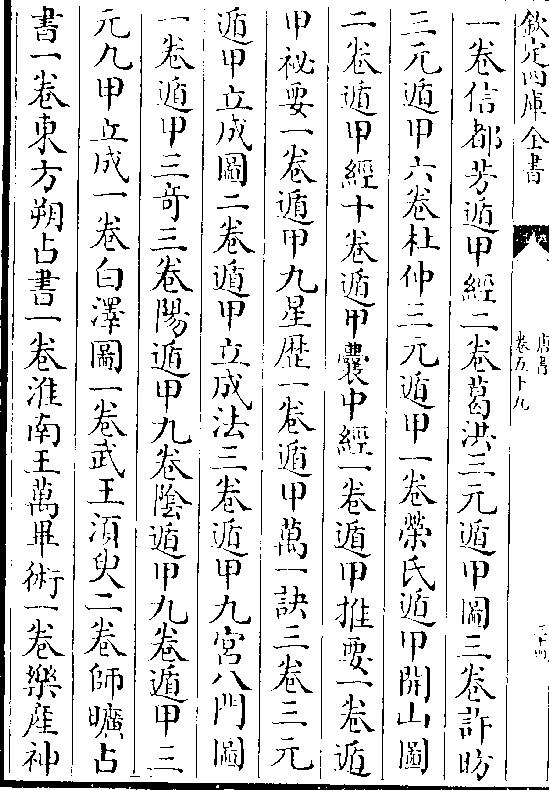 欽定四庫全書
唐書
卷五十九
三十四
一卷信都芳遁甲經二卷葛洪三元遁甲圖三卷許昉
三元遁甲六卷杜仲三元遁甲一卷榮氏遁甲開山圖
二卷遁甲經十卷遁甲囊中經一卷遁甲推要一卷遁
甲祕要一卷遁甲九星歴一卷遁甲萬一訣三卷三元
遁甲立成圖二卷遁甲立成法三卷遁甲九宮八門圖
一卷遁甲三竒三卷陽遁甲九卷陰遁甲九卷遁甲三
元九甲立成一卷白澤圖一卷武王須臾二卷師曠占
書一卷東方朔占書一卷淮南王萬畢術一卷樂産神